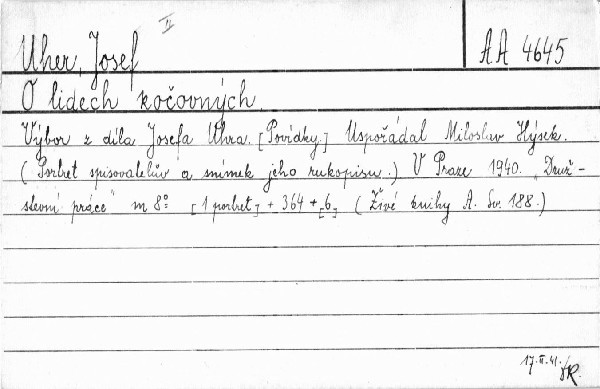 II
Uher, Josef
AA 4645
O lidech kočovných.
Výbor z díla Josefa Uhra. [Povídky.] Uspořádal Miloslav Hýsek.
(Portret spisovatelův a snímek jeho rukopisu.) V Praze 1940. „Druž-
stevní práce" m 8° [1 portret] + 364 + [6] (Živé knihy A. Sv. 188.)
17.II.41./